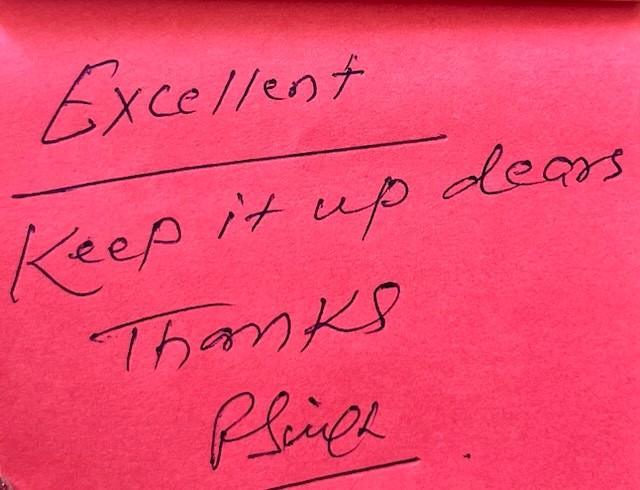 Excellent
Keep it up dears
Thanks
PSingh